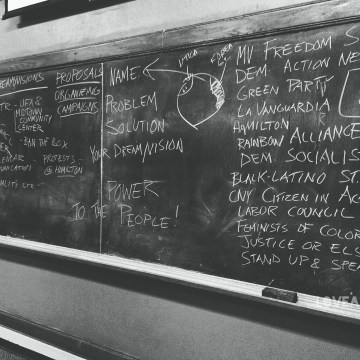 PROPOSALS
ORGANIZING
CAMPAIGNS
UFA &
MIDTOWN
COMMUNITY
CENTER
- BAN THE BOX
PROTESTS -
@ HAMILTON
NAME
UTICA
PROBLEM
SOLUTION
YOUR DREAM/VISION
POWER
TO THE PEOPLE!
MV FREEDOM
DEM. ACTION
GREEN PARTY
LA VANGUARDIA
HAMILTON
RAINBOW ALLIANCE
DEM. SOCIALIS
BLACK-LATINO ST
CNY CITIZEN IN AC
LABOR COUNCIL
FEMINISTS OF COLOR
JUSTICE OR ELS
STAND UP & SPE